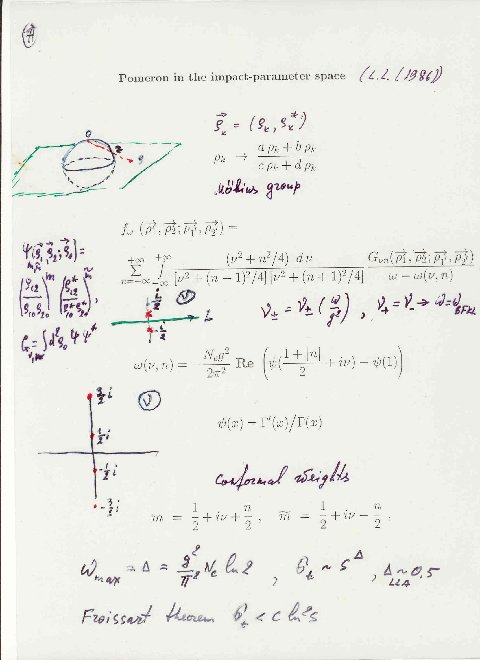 Pomeron in the impact-parameter space (L.L. (1986))
0
ρ⃗_k = (ρ_k, ρ_k^*)
ρ_k → (a ρ_k + b ρ_k) / (c ρ_k + d ρ_k)
Möbius group
f_ω (ρ⃗_1, ρ⃗_2; ρ⃗_1', ρ⃗_2') =
Σ_{n=−∞}^{+∞} ∫_{−∞}^{+∞} (ν² + n²/4) dν / ([ν² + (n − 1)²/4] [ν² + (n + 1)²/4]) G_{νn}(ρ⃗_1, ρ⃗_2; ρ⃗_1', ρ⃗_2') / (ω − ω(ν, n))
(ρ_12 / ρ_10 ρ_20)^m (ρ_12^* / ρ_10^* ρ_20^*)^m̃ ,
ν
i/2
-i/2
L
ν_± = ν_± (ω/g²) , ν_+ = ν_- → ω = ω_BFKL
ω(ν, n) = − N_c g² / 2π² Re ( ψ( (1 + |n|)/2 + iν) − ψ(1) )
ν
3/2 i
1/2 i
-1/2 i
-3/2 i
ψ(x) − Γ'(x)/Γ(x)
Conformal weights
m = 1/2 + iν + n/2 , m̃ = 1/2 + iν − n/2 .
ω_max = Δ = g²/π² N_c ln 2 , σ_t ~ s^Δ , Δ_LLA ~ 0.5
Froissart theorem σ_t < c ln² s